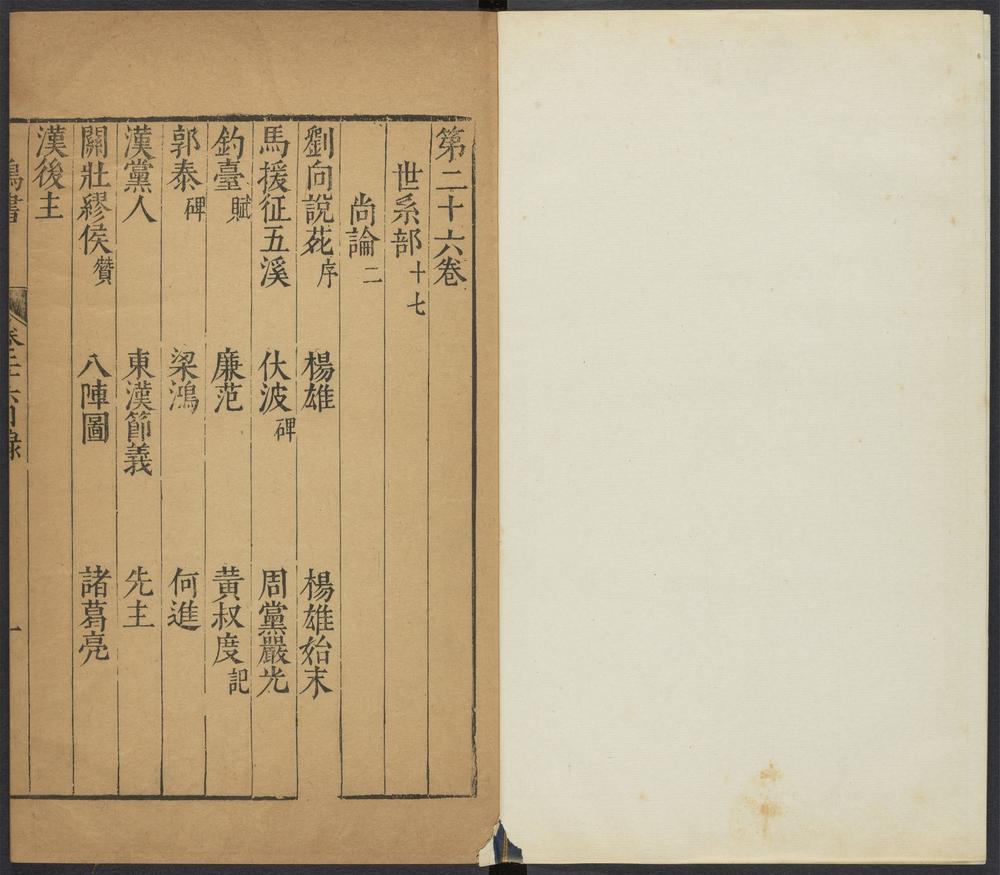 第二十六卷
世系部 十七
尚論 二
劉向說苑 序 楊雄 楊雄始末
馬援征五溪 伏波 碑 周黨嚴光
釣臺 賦 廉范 黃叔度 記
郭泰 碑 梁鴻 何進
漢黨人 東漢節義 先主
關壯繆侯 贊 八陣圖 諸葛亮
漢後主